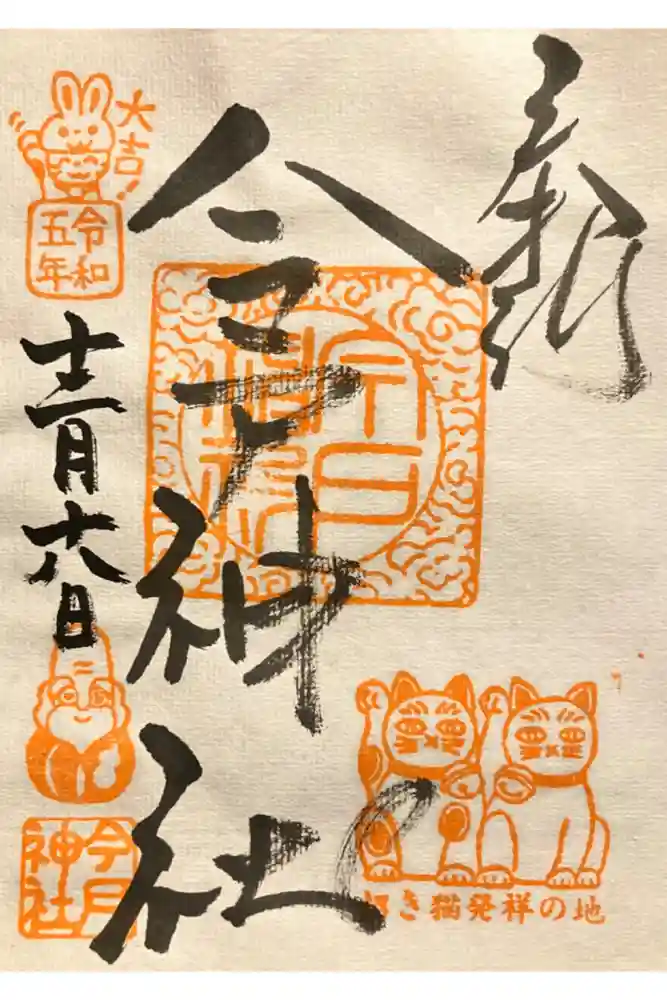 奉拝
今戸神社
今戸
神社
大吉!
令和
五年
十二月六日
今戸
神社
招き猫発祥の地